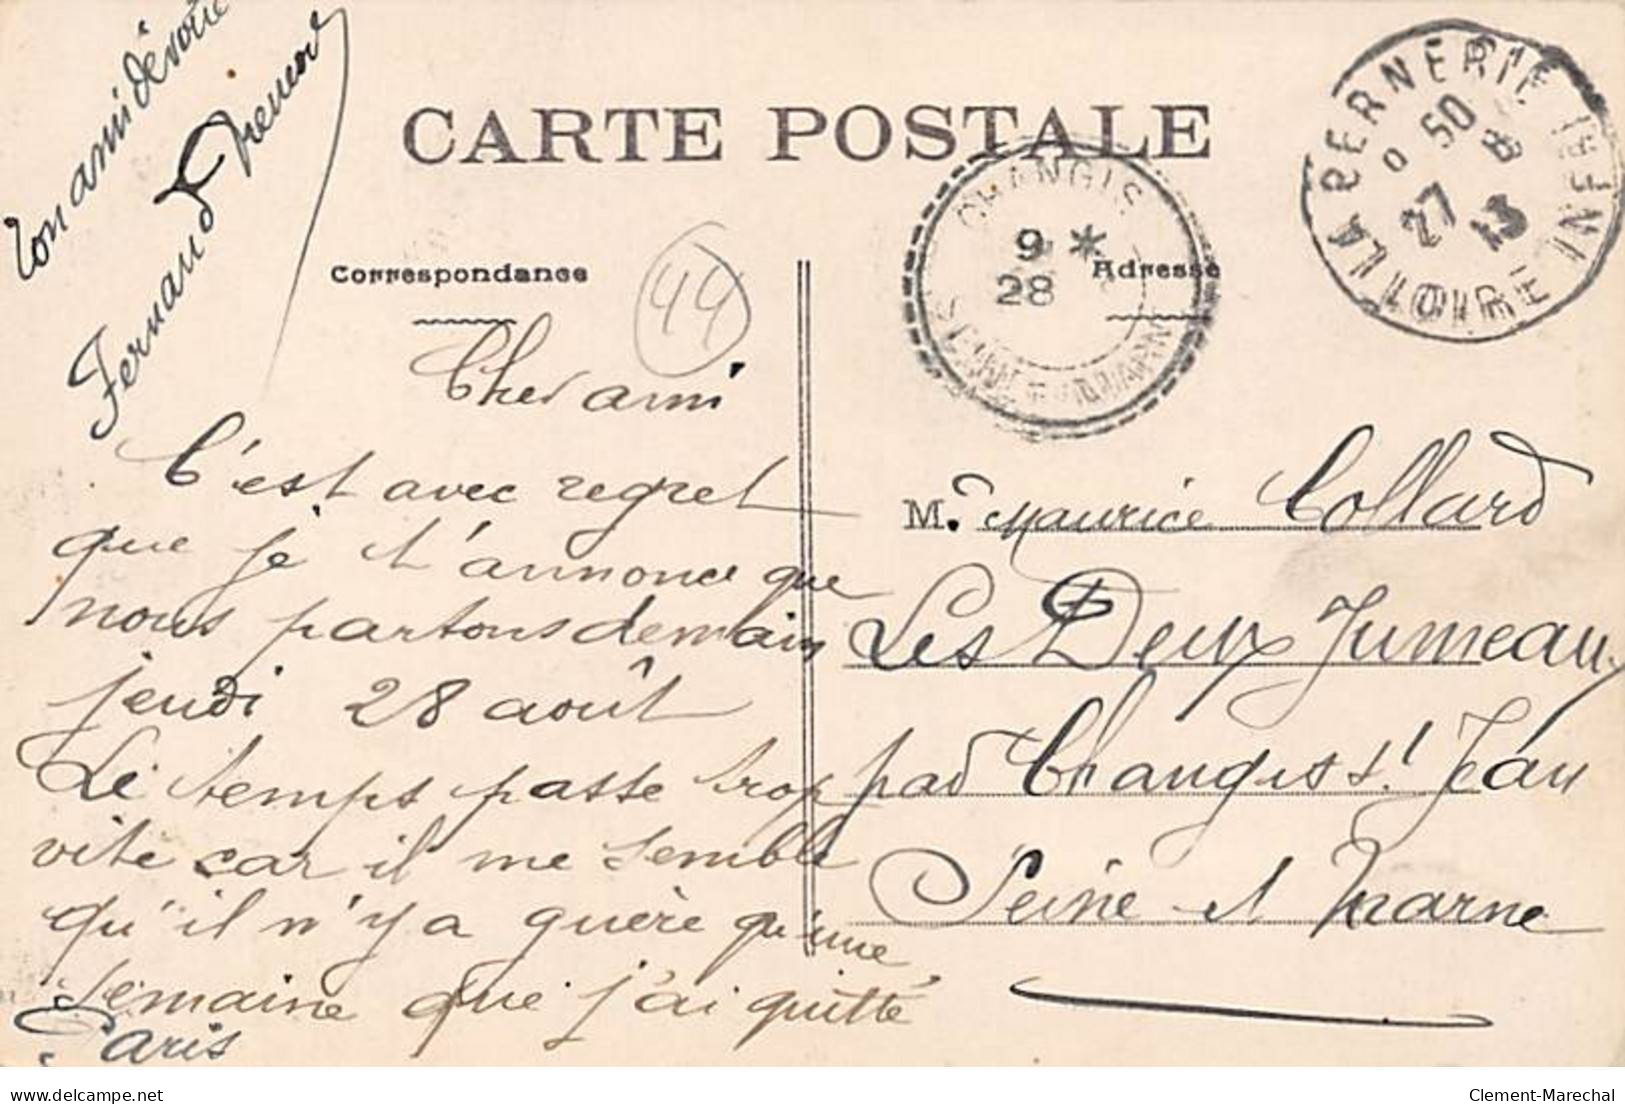 Ton ami dévoué
Fernand
CARTE POSTALE
Correspondance
Adresse
44
CHANGIS
9 *
28
LA BERNERIE
LOIRE INFRE
50
27
13
Cher ami
C'est avec regret
que je t'annonce que
nous partons demain
jeudi 28 août
Le temps passe trop
vite car il me semble
qu'il n'y a guère qu'une
semaine que j'ai quitté
Paris
M. Maurice Collard
Les Deux Jumeaux
par Changis st Jean
Seine et Marne
delcampe.net
Clement-Marechal